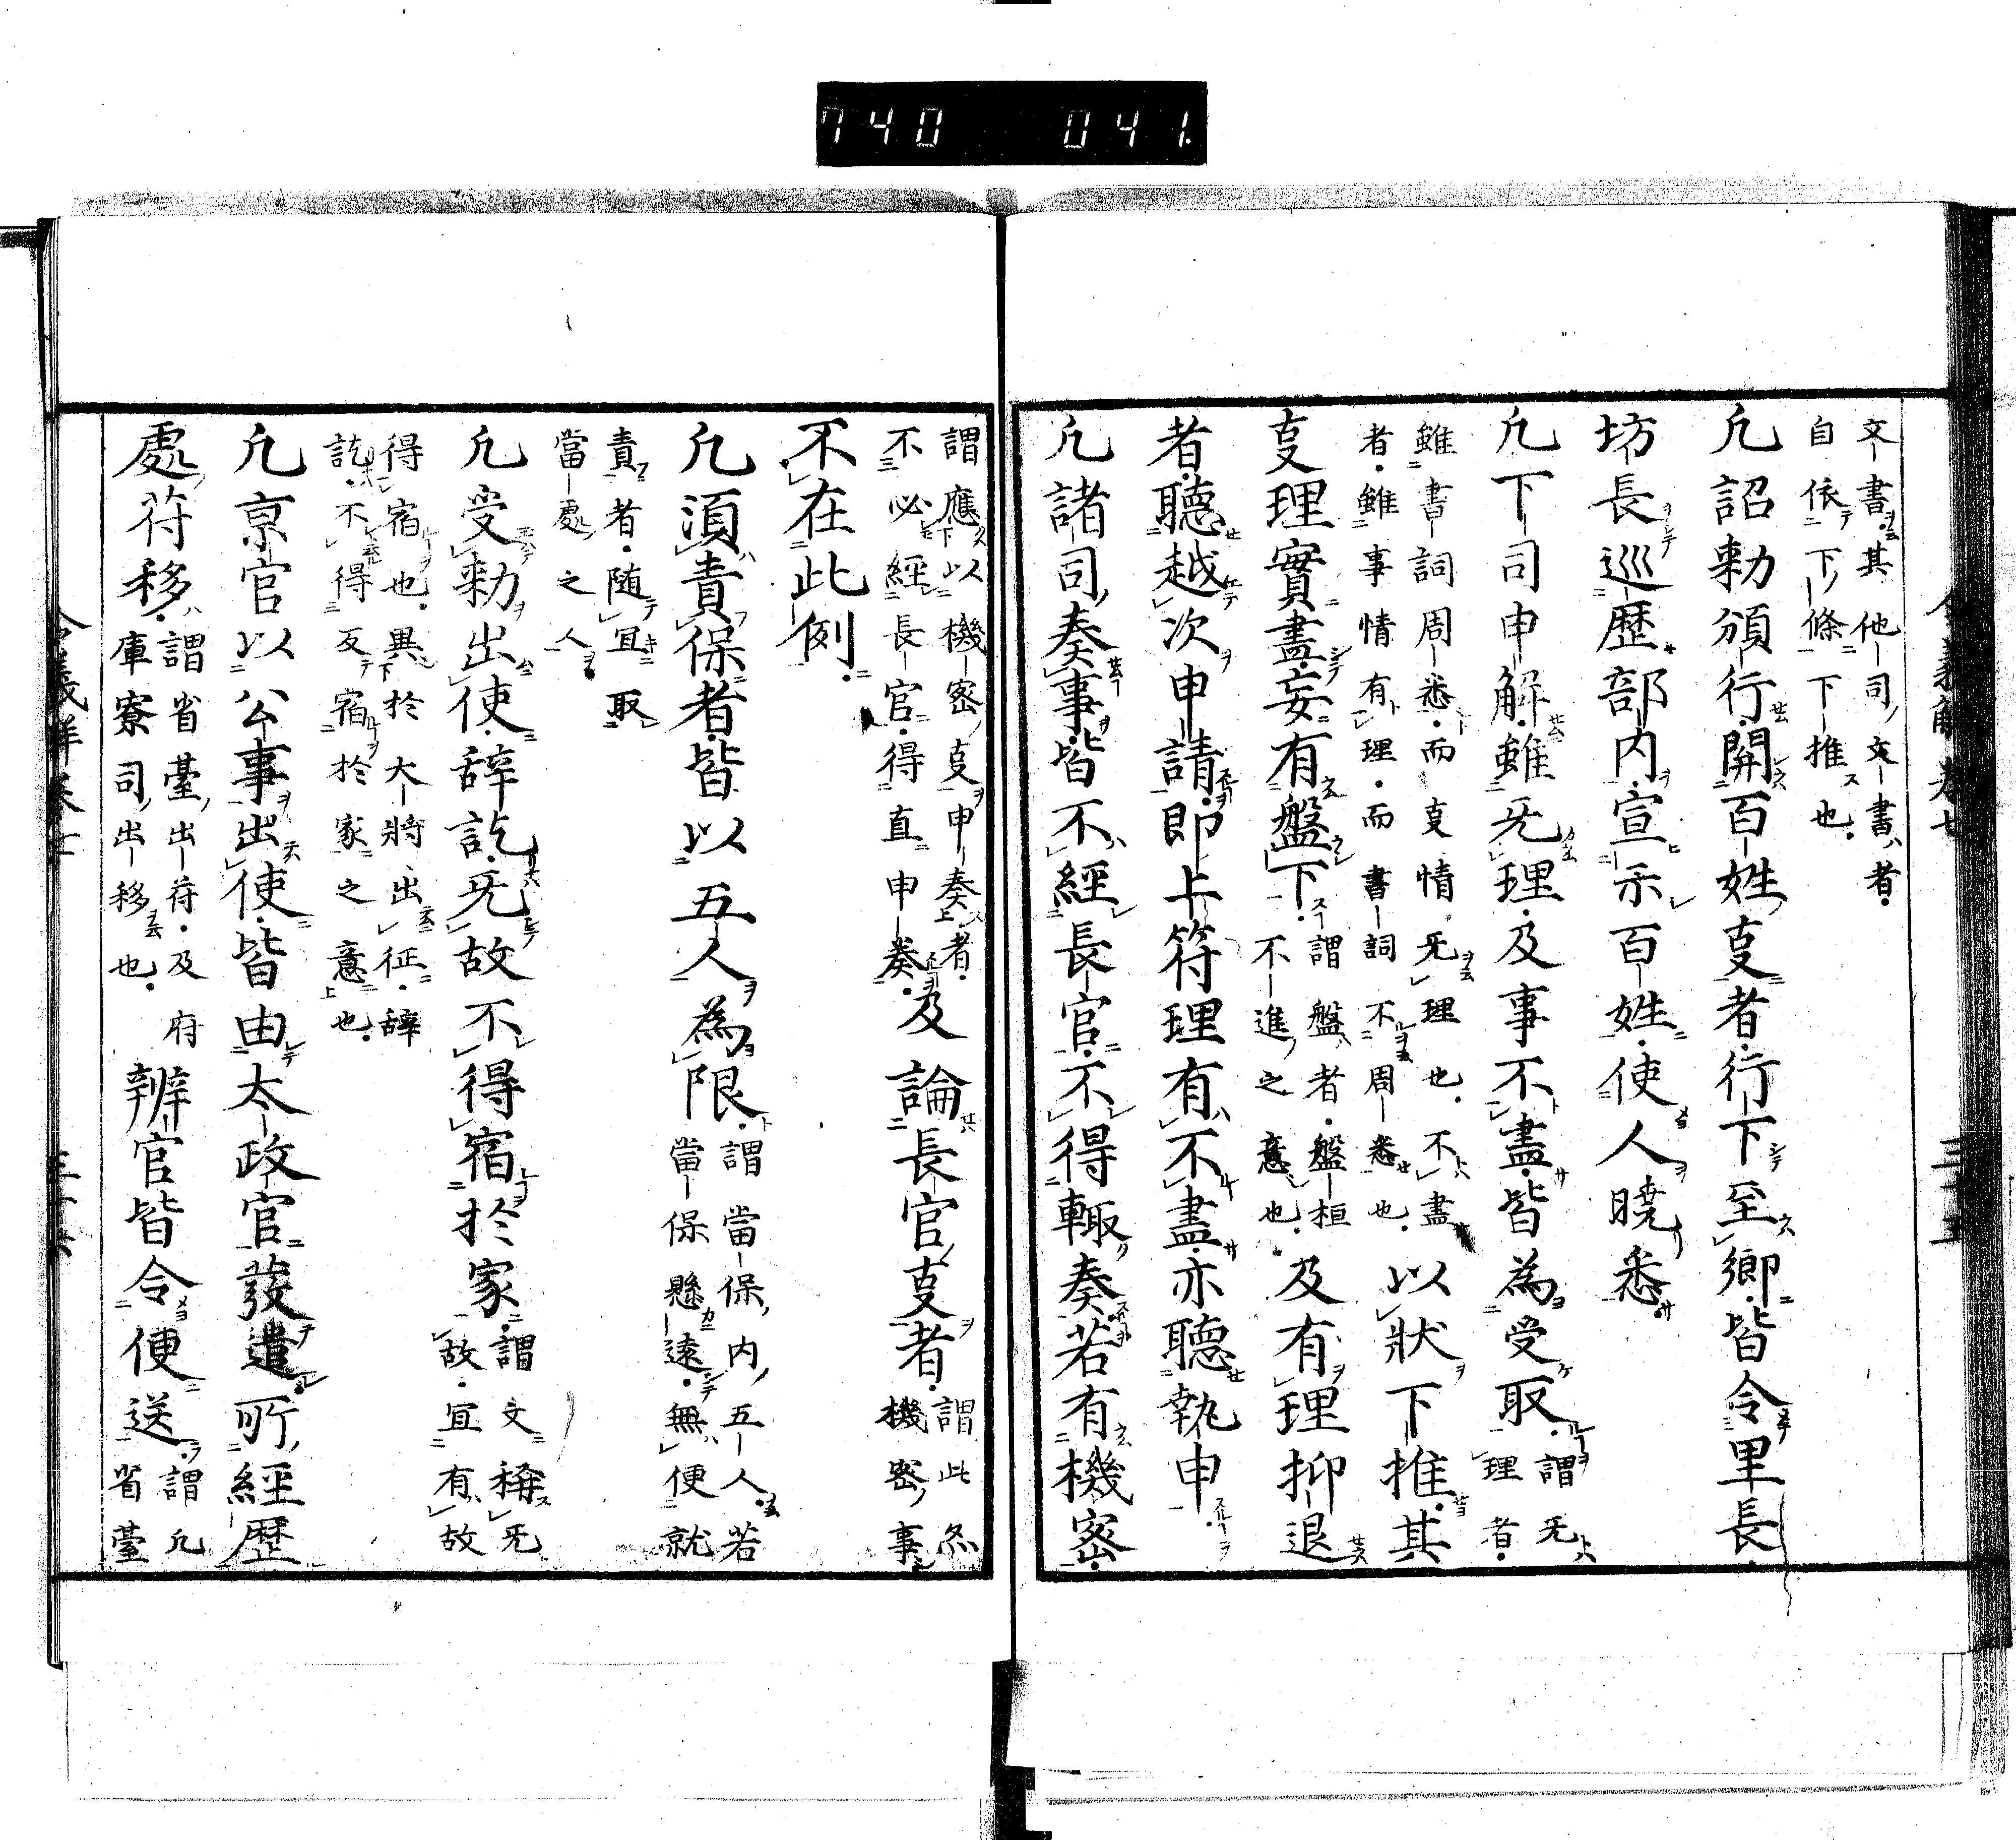 740 041.
文書其他司文書者
自依下條下推也
凡詔勅頒行関百姓叓者行下至鄉皆令里長
坊長巡歷部内宣示百姓使人曉悉
凡下司申解雖无理及事不盡皆為受取謂无
理者
雖書詞周悉而叓情无理也不盡
者雖事情有理而書詞不周悉也以狀下推其
叓理實盡妄有盤下謂盤者盤桓
不進之意也及有理抑退
者聽越次申請即上符理有不盡亦聽執申
凡諸司奏事皆不經長官不得輙奏若有機密
謂應以機密叓申奏者
不必經長官得直申奏及論長官叓者謂此㷊
機密事
不在此例
凡須責保者皆以五人為限謂當保内五人若
當保懸遠無便就
責者随宜取
當處之人
凡受勅出使辞訖无故不得宿於家謂文稱无
故宜有故
得宿也異於大将出征辞
訖不得反宿於家之意也
凡京官以公事出使皆由太政官發遣所經歷
處符移謂省臺出符及府
庫寮司出移也辨官皆令便送謂凡
省臺